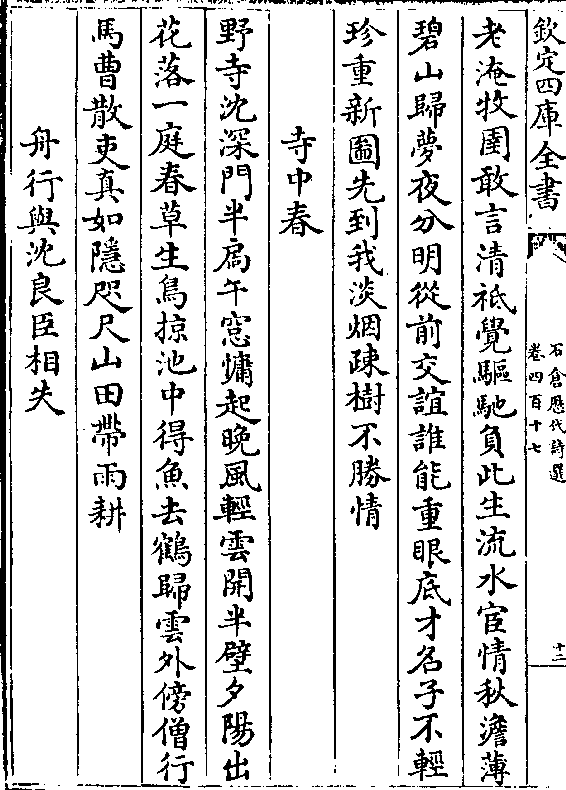 欽定四庫全書
石倉歴代詩選
卷四百十七
十二
老淹牧圉敢言清祗覺驅馳負此生流水宦情秋澹薄
碧山歸夢夜分明從前交誼誰能重眼底才名子不輕
珍重新圖先到我淡烟疎樹不勝情
寺中春
野寺沈深門半扃午窓慵起晚風輕雲開半壁夕陽出
花落一庭春草生鳥掠池中得魚去鶴歸雲外傍僧行
馬曹散吏真如隱咫尺山田帶雨耕
舟行與沈良臣相失